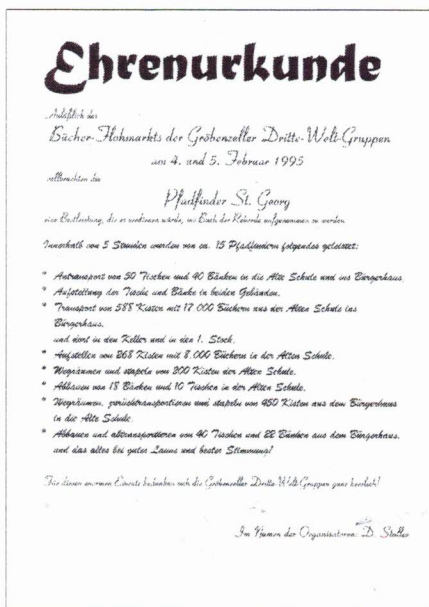 Ehrenurkunde
Anläßlich des
Bücher-Flohmarkts der Gröbenzeller Dritte-Welt-Gruppen
am 4. und 5. Februar 1995
vollbrachten die
Pfadfinder St. Georg
eine Bestleistung, die es verdienen würde, ins Buch der Rekorde aufgenommen zu werden.
Innerhalb von 5 Stunden wurden von ca. 15 Pfadfindern folgendes geleistet:
* Antransport von 50 Tischen und 40 Bänken in die Alte Schule und ins Bürgerhaus.
* Aufstellung der Tische und Bänke in beiden Gebäuden.
* Transport von 588 Kisten mit 17.000 Büchern aus der Alten Schule ins
Bürgerhaus.
und dort in den Keller und in den 1. Stock.
* Aufstellen von 268 Kisten mit 8.000 Büchern in der Alten Schule.
* Wegräumen und stapeln von 200 Kisten der Alten Schule.
* Abbauen von 18 Bänken und 10 Tischen in der Alten Schule.
* Wegräumen, zurücktransportieren und stapeln von 450 Kisten aus dem Bürgerhaus
in die Alte Schule.
* Abbauen und abtransportieren von 40 Tischen und 22 Bänken aus dem Bürgerhaus.
und das alles bei guter Laune und bester Stimmung!
Für diesen enormen Einsatz bedanken sich die Gröbenzeller Dritte-Welt-Gruppen ganz herzlich!
Im Namen der Organisatoren: D.